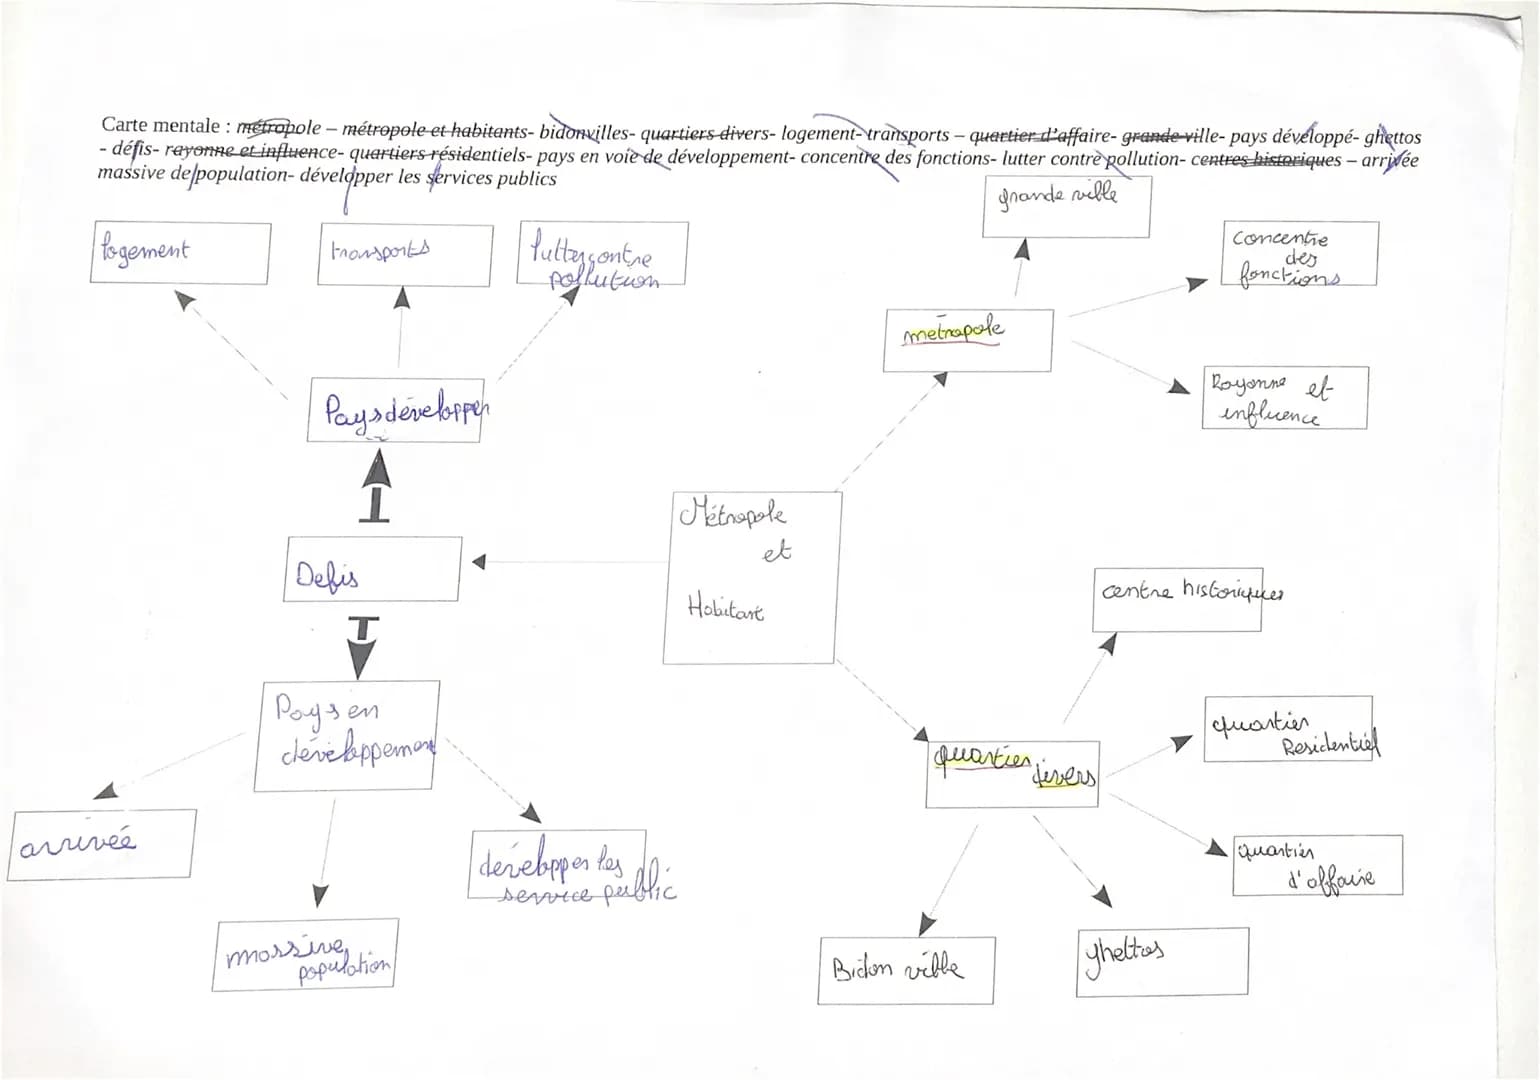 Carte mentale : métropole – métropole et habitants- bidonvilles- quartiers divers- logement- transports – quartier d'affaire- grande ville- pays développé- ghettos
- défis- rayonne et influence- quartiers résidentiels- pays en voie de développement- concentre des fonctions- lutter contre pollution- centres historiques – arrivée
massive de population- développer les services publics
grande ville
logement
transports
lutter contre
pollution
concentre
des
fonctions
metropole
Rayonne et
influence
Pays développer
Métropole
et
Habitant
Defis
centre historiques
Pays en
développement
quartier
Residentiel
quartier
divers
arrivée
développer les
service public
quartier
d'affaire
massive
population
Bidon ville
ghettos